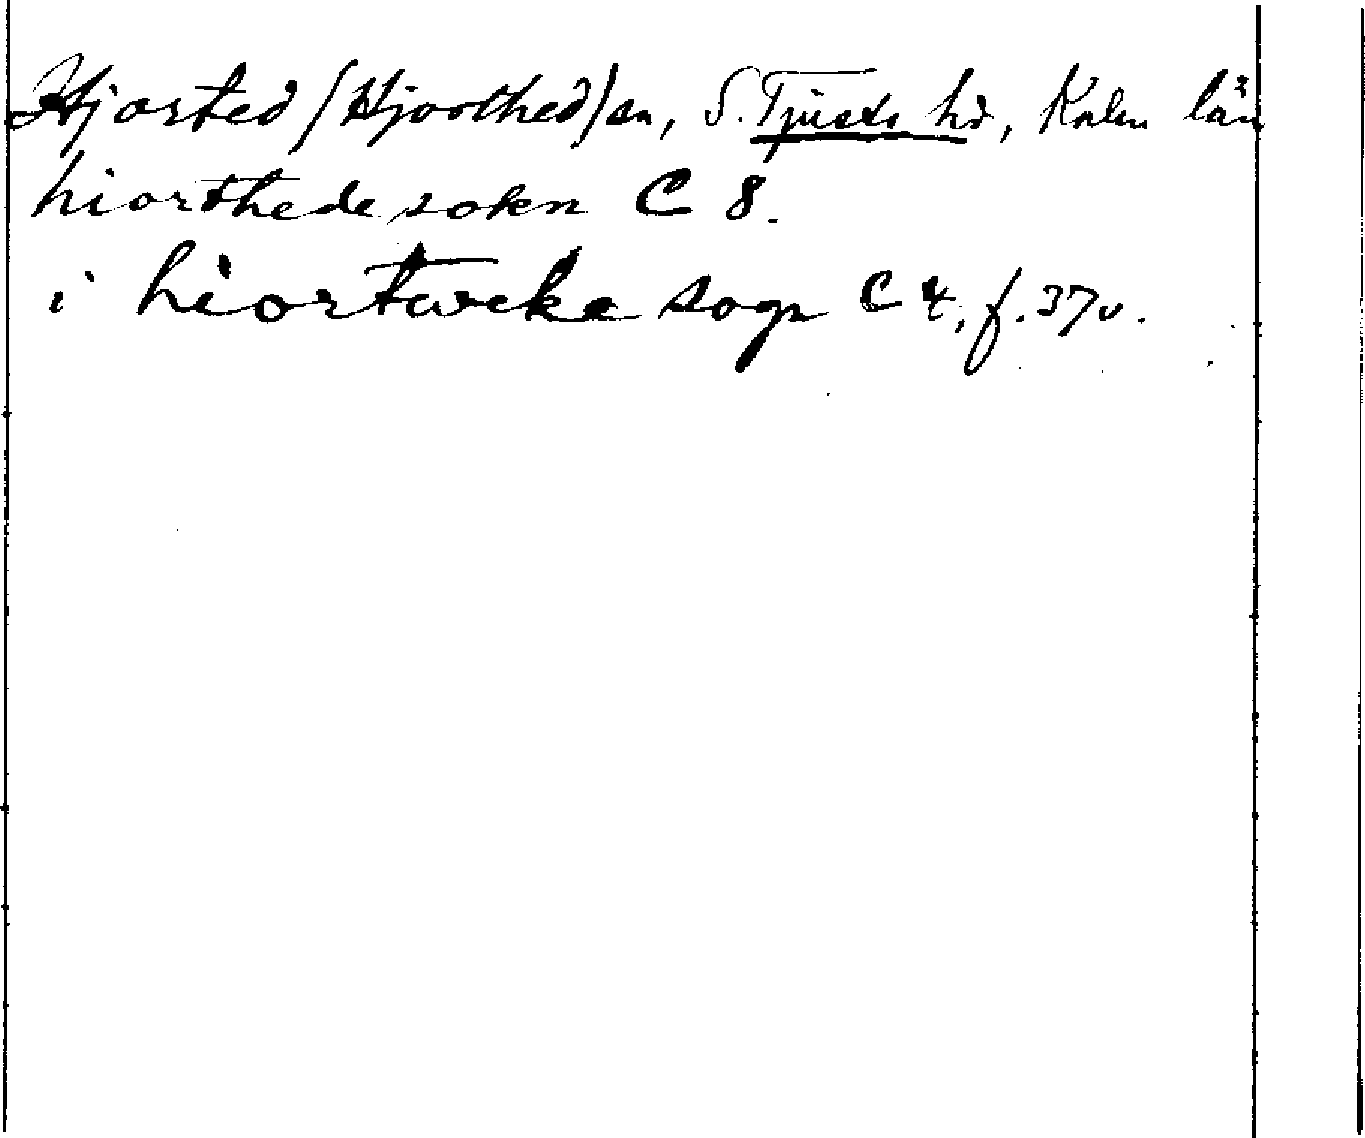 Hjorted (Hjorthed) sn, S. Tjusts hd, Kalm län
hiorthede sokn C 8.
i hiortweke sogn C 4, f. 37v.